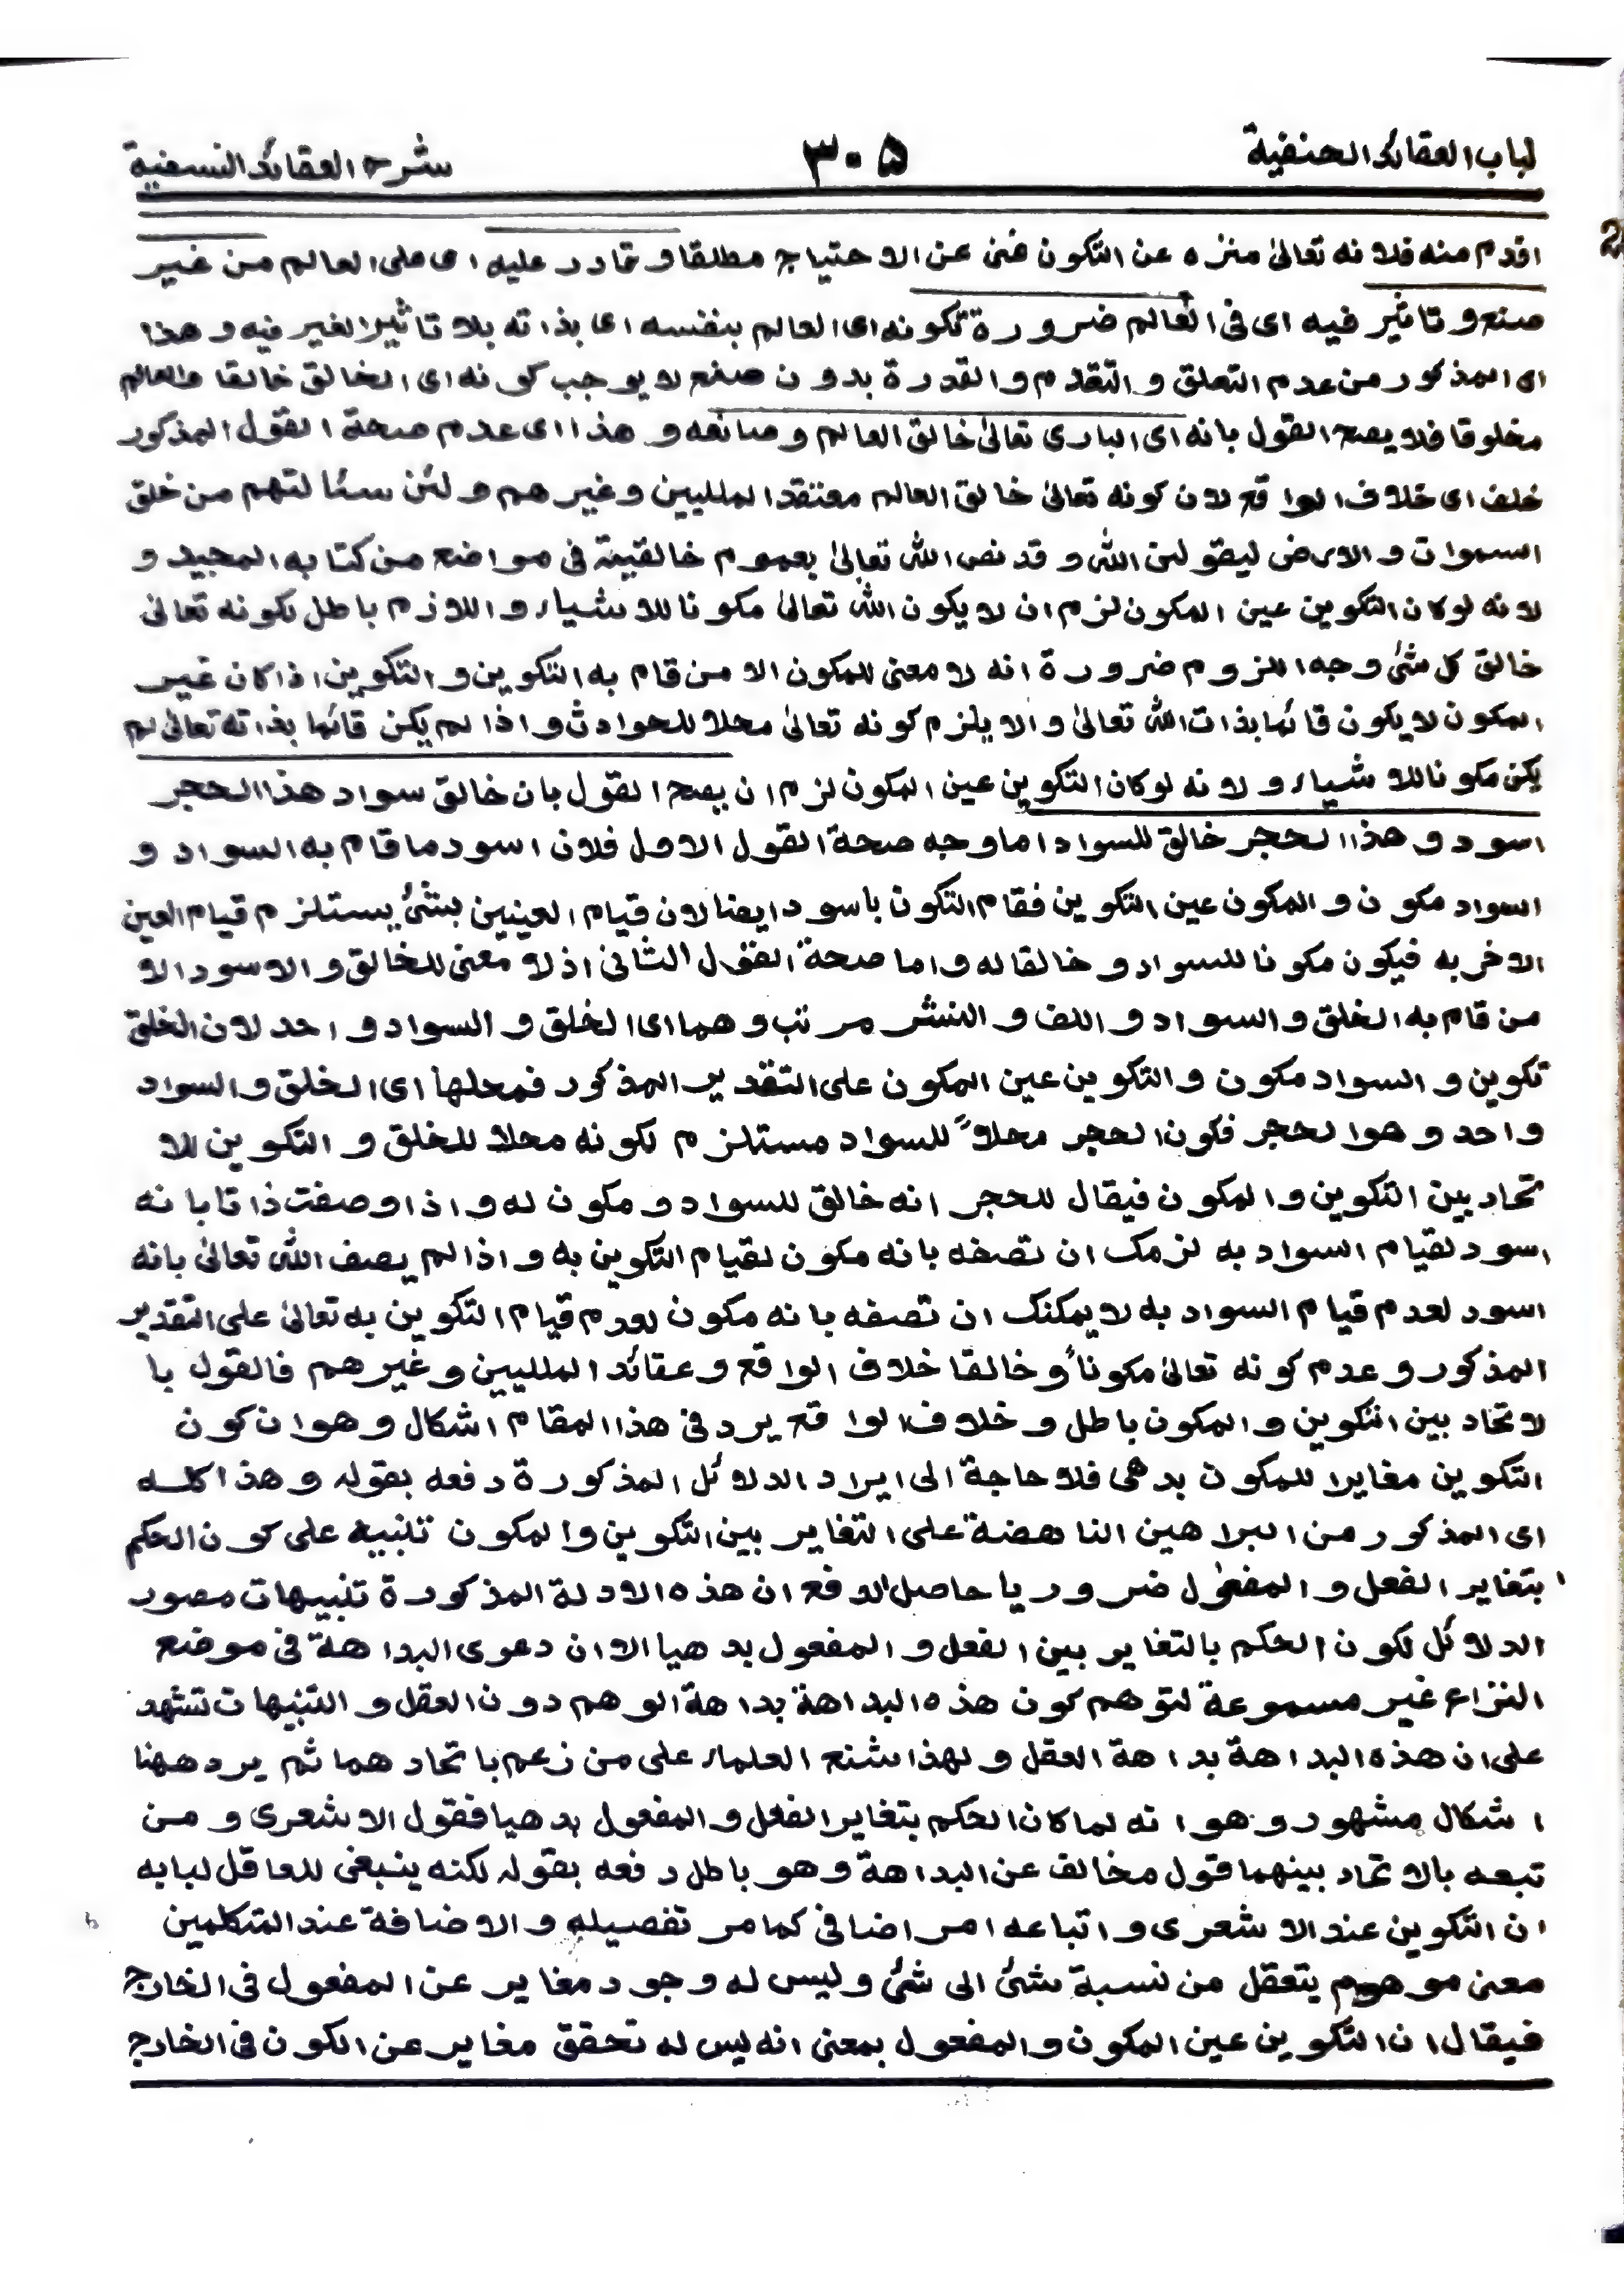 لباب العقائد الحنفية ٣٠٥ شرح العقائد النسفية
اقدم منه فلا نه تعالیٰ منزه عن التكون غنی عن الاحتیاج مطلقا و قادر علیه ای علی العالم من غیر
صنع و تاثیر فیه ای فی العالم ضرورة تكونه ای العالم بنفسه ای بذاته بلا تاثیر الغیر فیه و هذا
ای المذكور من عدم التعلق و التقدم و القدرة بدون صنع لا یوجب كونه ای الخالق خالقا و العالم
مخلوقا فلا یصح القول بانه ای الباری تعالیٰ خالق العالم و صانعه و هذا ای عدم صحة القول المذكور
خلف ای خلاف الواقع لان كونه تعالیٰ خالق العالم معتقد الملیین و غیرهم و لئن سئالتهم من خلق
السموات و الارض لیقولن الله و قد نص الله تعالیٰ بعموم خالقیته فی مواضع من كتابه المجید و
لانه لو كان التكوین عین المكون لزم ان لا یكون الله تعالیٰ مكونا للاشیاء و اللازم باطل لكونه تعالیٰ
خالق كل شئ وجه اللزوم ضرورة انه لا معنی للمكون الا من قام به التكوین و التكوین اذا كان غیر
المكون لا یكون قائما بذات الله تعالیٰ و الا یلزم كونه تعالیٰ محلا للحوادث و اذا لم یكن قائما بذاته تعالیٰ لم
یكن مكونا للاشیاء و لانه لو كان التكوین عین المكون لزم ان یصح القول بان خالق سواد هذا الحجر
اسود و هذا الحجر خالق للسواد اما وجه صحة القول الاول فلان اسود ما قام به السواد و
السواد مكون و المكون عین التكوین فقام التكون باسود ایضا لان قیام العینین بشئ یستلزم قیام العین
الاخر به فیكون مكونا للسواد و خالقا له و اما صحة القول الثانی اذ لا معنی للخالق و الاسود الا
من قام به الخلق و السواد و اللف و النشر مرتب و هما ای الخلق و السواد واحد لان الخلق
تكوین و السواد مكون و التكوین عین المكون علی التقدیر المذكور فمحلها ای الخلق و السواد
واحد و هو الحجر فكون الحجر محلاً للسواد مستلزم لكونه محلا للخلق و التكوین للا
تحاد بین التكوین و المكون فیقال للحجر انه خالق للسواد و مكون له و اذا وصفت ذاتا بانه
اسود لقیام السواد به لزمك ان تصفه بانه مكون لقیام التكوین به و اذا لم یصف الله تعالیٰ بانه
اسود لعدم قیام السواد به لا یمكنك ان تصفه بانه مكون لعدم قیام التكوین به تعالیٰ علی التقدیر
المذكور و عدم كونه تعالیٰ مكوناً و خالقا خلاف الواقع و عقائد الملیین و غیرهم فالقول با
لاتحاد بین التكوین و المكون باطل و خلاف الواقع یرد فی هذا المقام اشكال و هو ان كون
التكوین مغایرا للمكون بدهی فلا حاجة الی ایراد الدلائل المذكورة دفعه بقوله و هذا كله
ای المذكور من البراهین الناهضة علی التغایر بین التكوین و المكون تنبیه علی كون الحكم
بتغایر الفعل و المفعول ضروریا حاصل الدفع ان هذه الادلة المذكورة تنبیهات مصور
الدلائل لكون الحكم بالتغایر بین الفعل و المفعول بدهیا الا ان دعوی البداهة فی موضع
النزاع غیر مسموعة لتوهم كون هذه البداهة بداهة الوهم دون العقل و التنبیهات تشهد
علی ان هذه البداهة بداهة العقل و لهذا شنع العلماء علی من زعم باتحادهما ثم یرد ههنا
اشكال مشهور و هو انه لما كان الحكم بتغایر الفعل و المفعول بدهیا فقول الاشعری و من
تبعه بالاتحاد بینهما قول مخالف عن البداهة و هو باطل دفعه بقوله لكنه ینبغی للعاقل لبابه
ان التكوین عند الاشعری و اتباعه امر اضافی كما مر تفصیله و الاضافة عند المتكلمین
معنی موهوم یتعقل من نسبة شئ الی شئ و لیس له وجود مغایر عن المفعول فی الخارج
فیقال ان التكوین عین المكون و المفعول بمعنی انه لیس له تحقق مغایر عن الكون فی الخارج